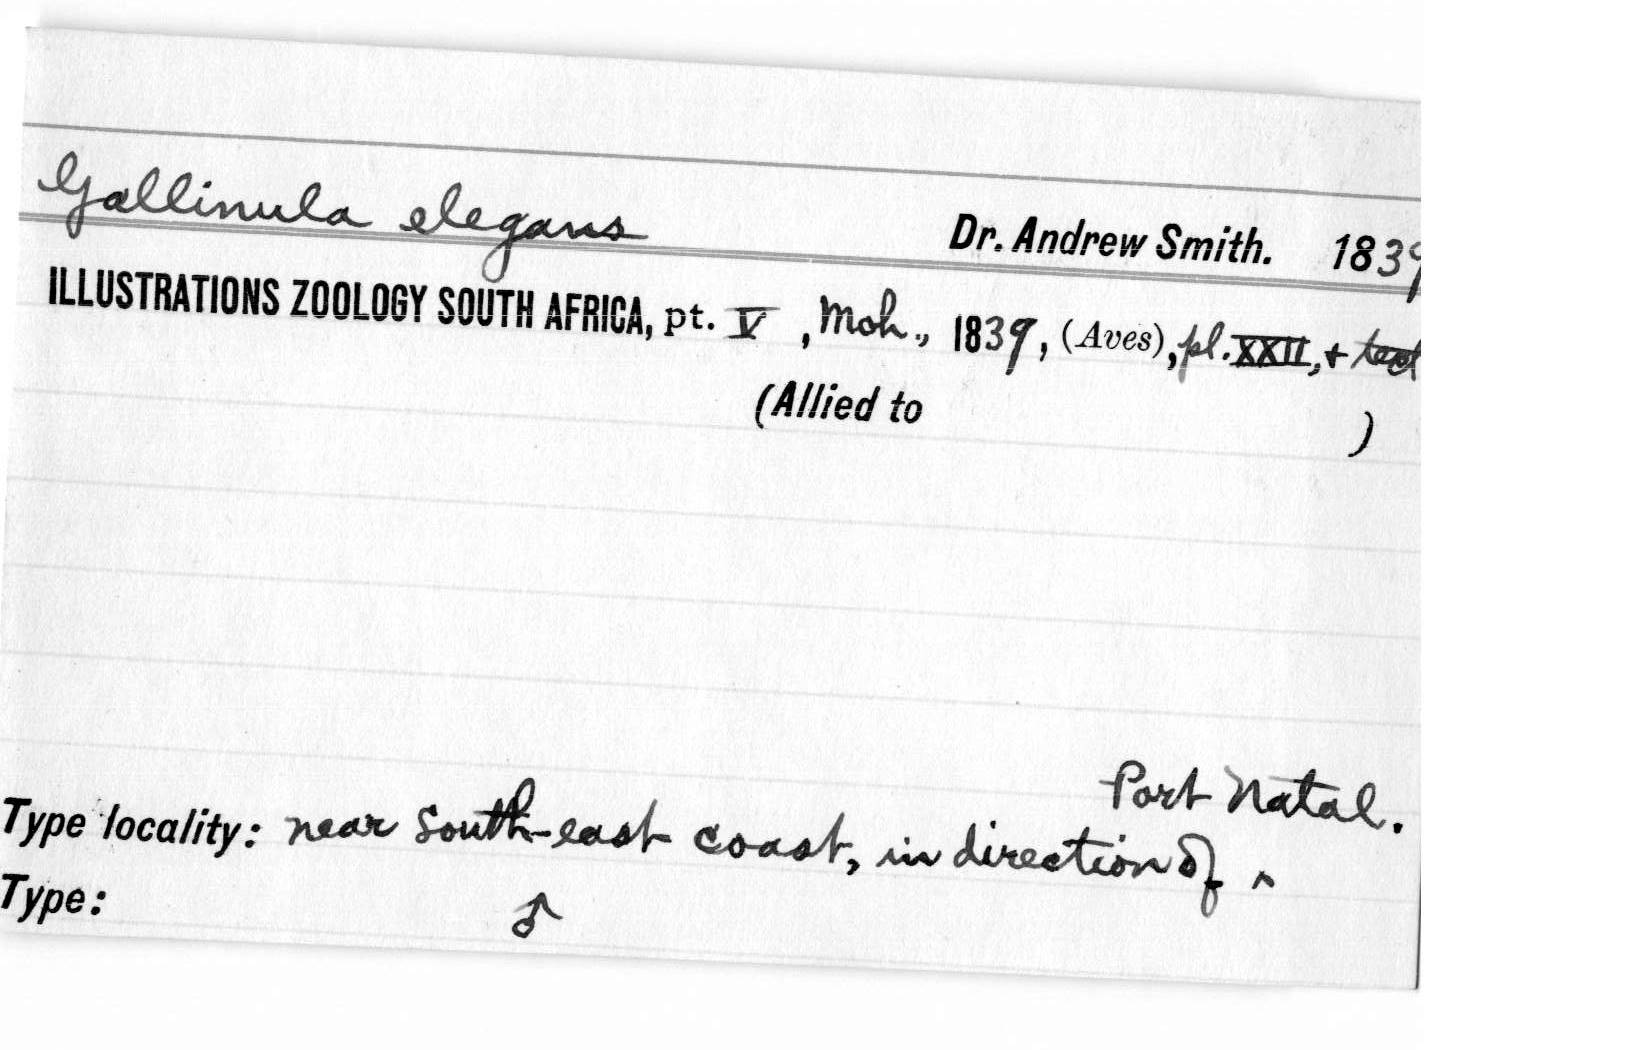 Gallinula elegans Dr. Andrew Smith. 1839
ILLUSTRATIONS ZOOLOGY SOUTH AFRICA, pt. V, Mch., 1839, (Aves), pl. XXII, + text
(Allied to )
Port Natal.
Type locality: near South-east coast, in direction of ^
Type: ♂